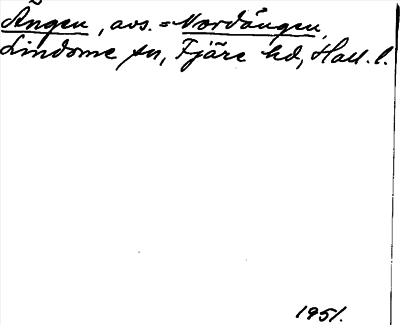 Ängen, avs. = Nordängen,
Lindome sn, Fjäre hd, Hall. l.
1951.